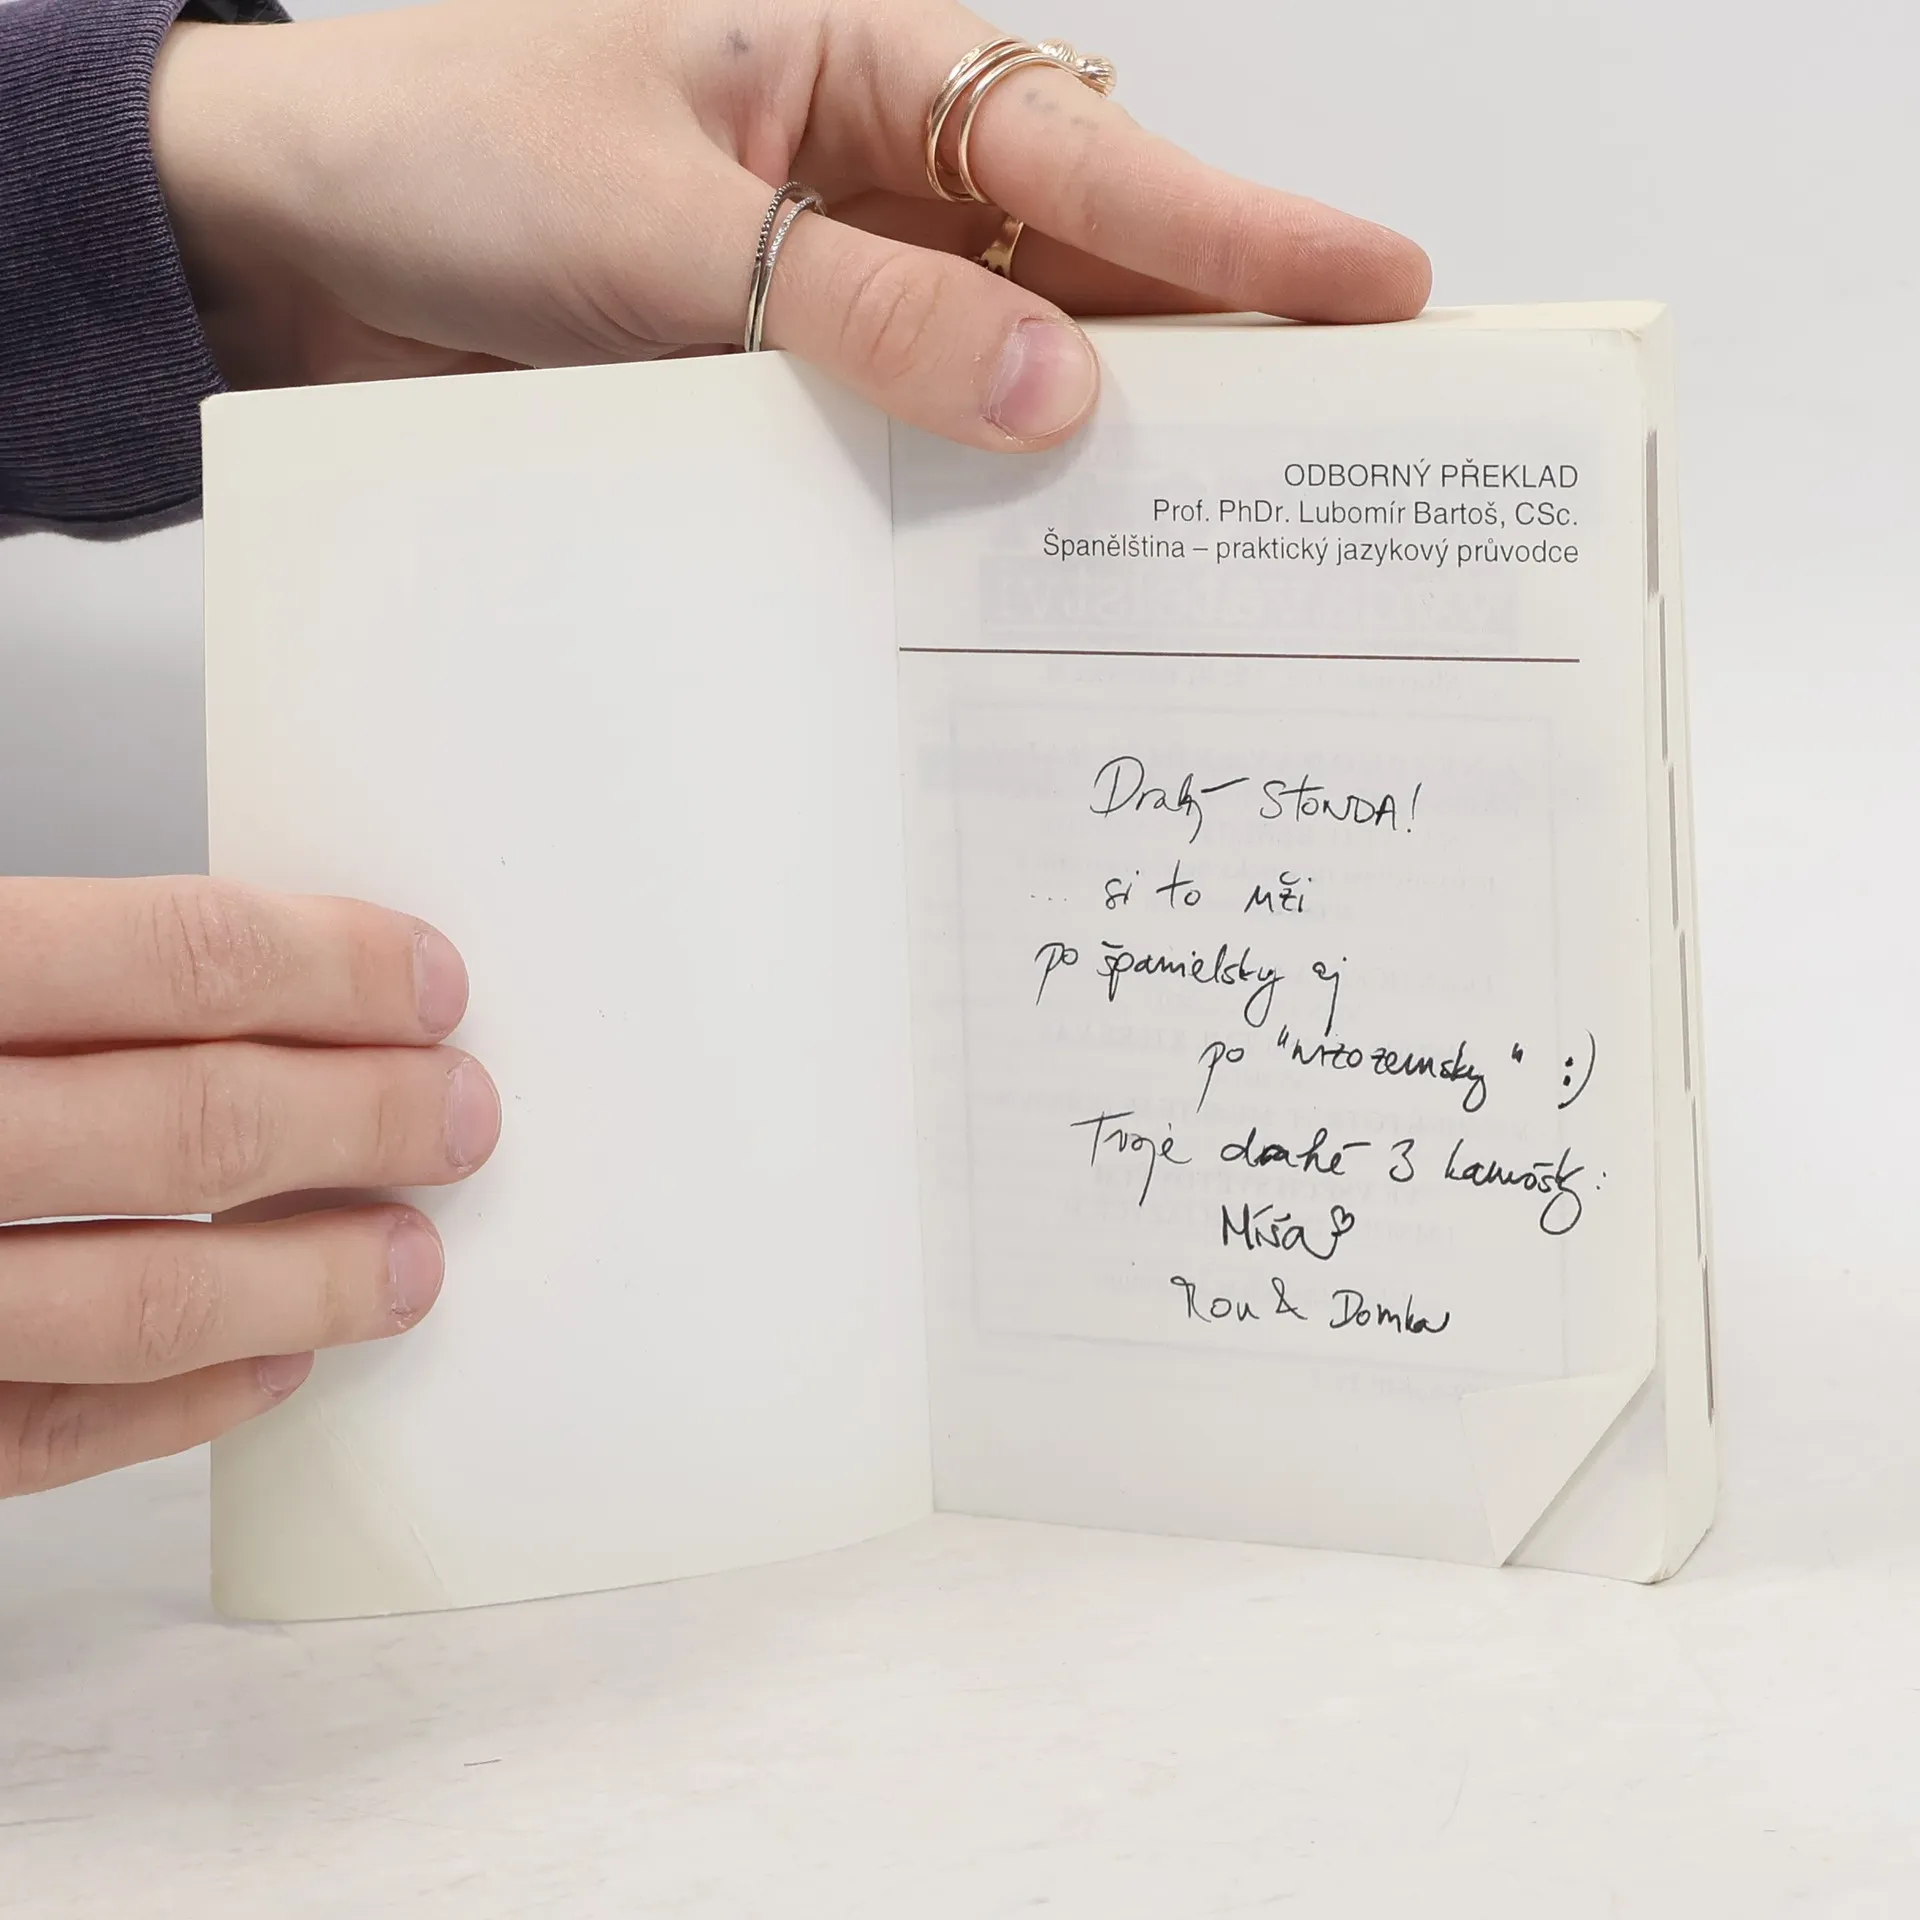 ODBORNÝ PŘEKLAD
Prof. PhDr. Lubomír Bartoš, CSc.
Španělština – praktický jazykový průvodce
Drahý STONDA!
... si to uži
po španielsky aj
po "nizozemsky" :)
Tvoje drahé 3 kamošky:
Míša
Ron & Domka